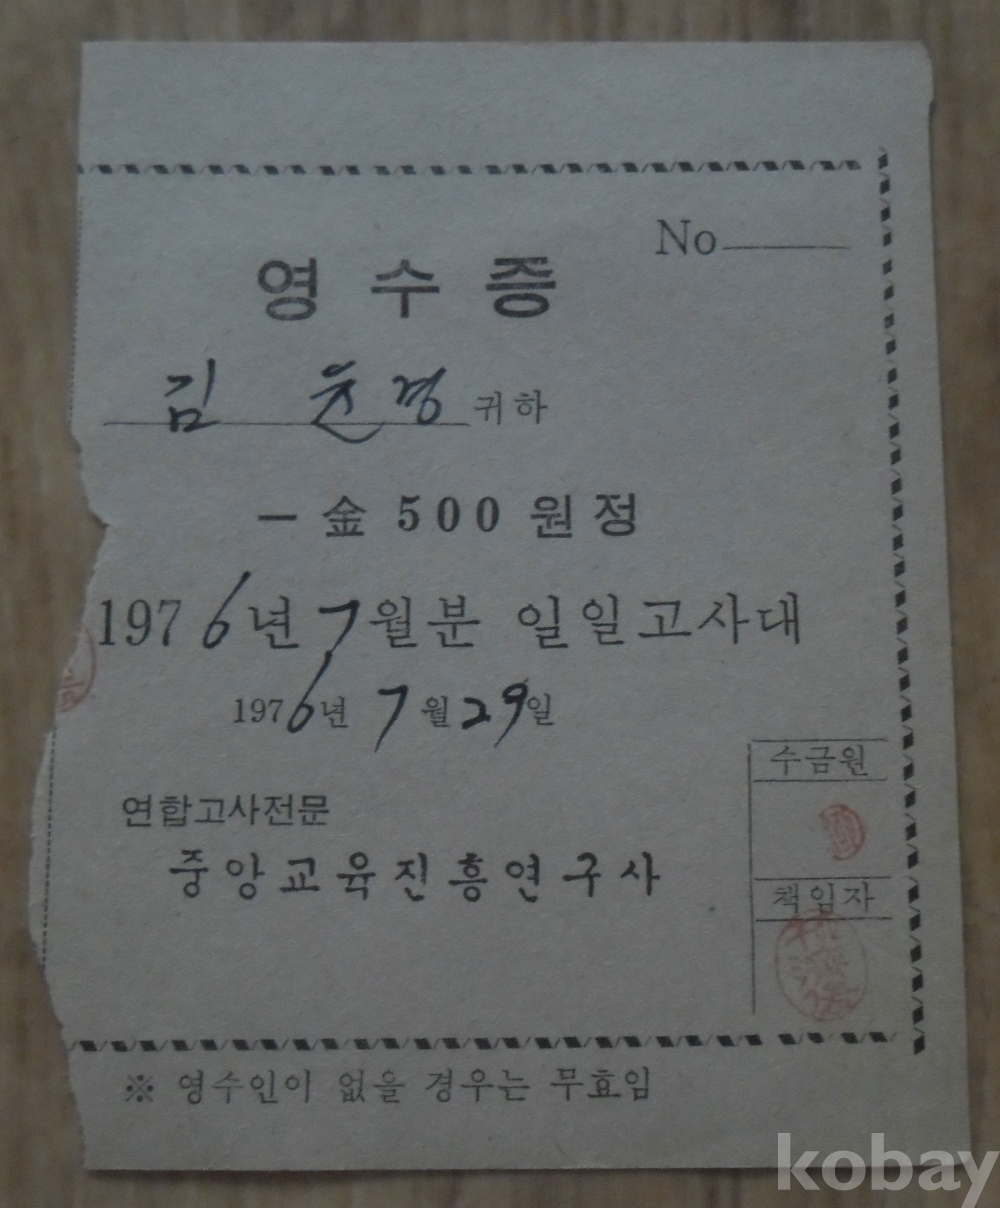 No
영수증
김 윤경 귀하
一金 500 원정
1976년 7월분 일일고사대
1976년 7월 29일
수금원
연합고사전문
중앙교육진흥연구사
책임자
※ 영수인이 없을 경우는 무효임
kobay